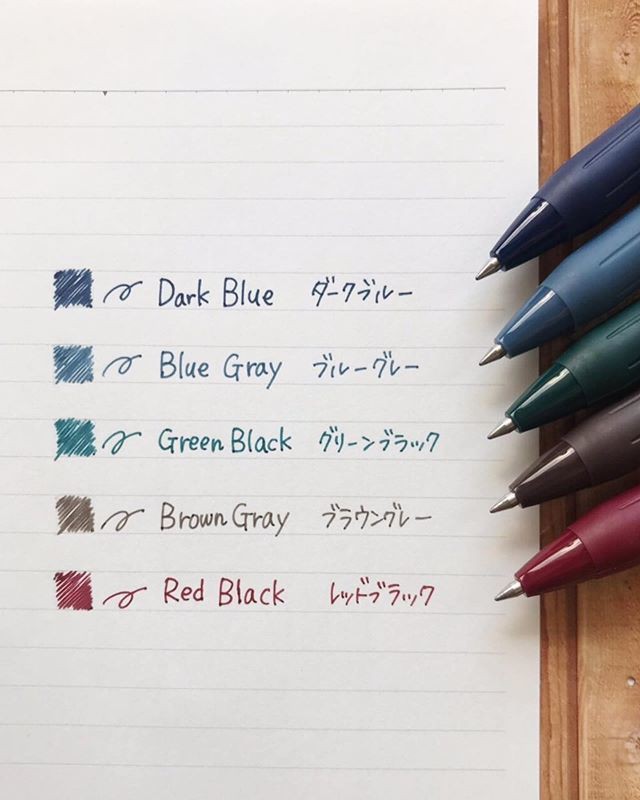 Dark Blue ダークブルー
Blue Gray ブルーグレー
Green Black グリーンブラック
Brown Gray ブラウングレー
Red Black レッドブラック